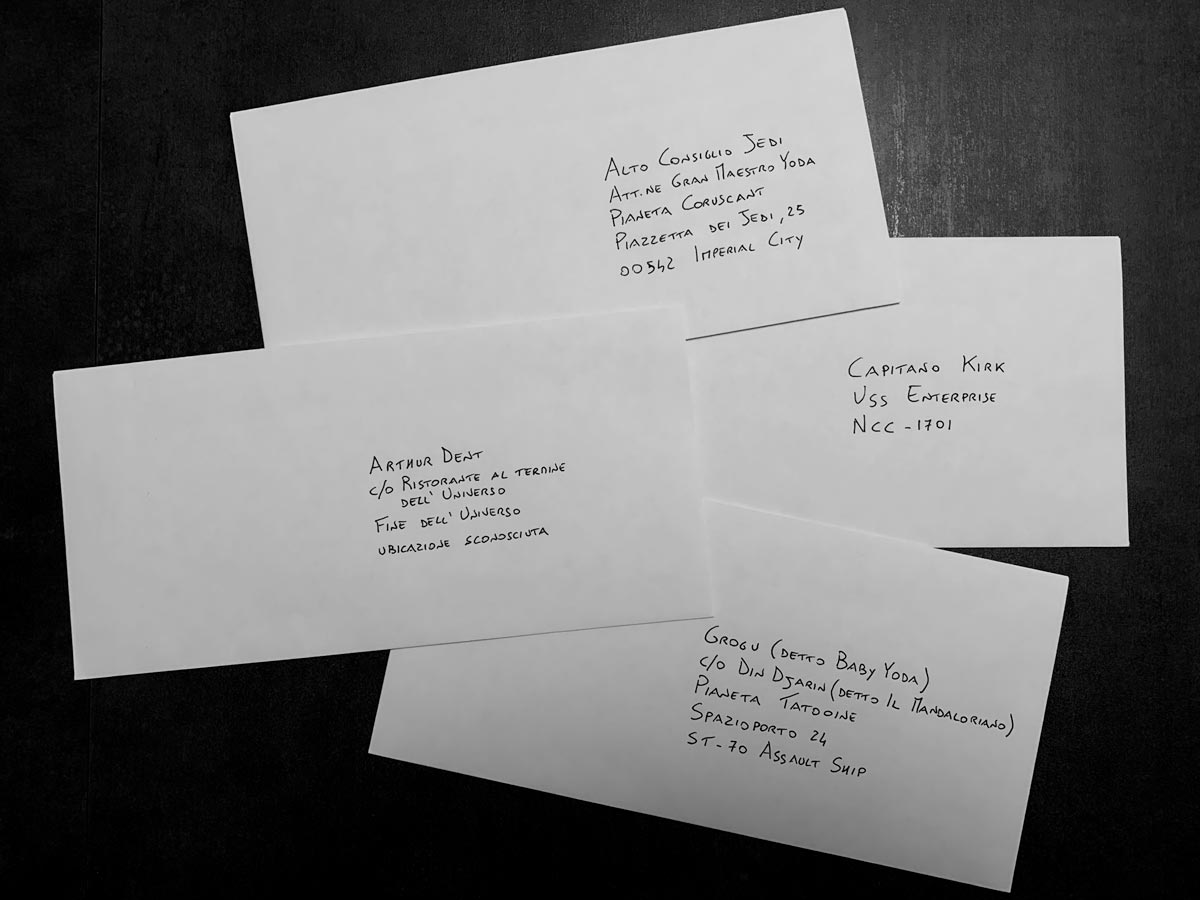 ALTO CONSIGLIO JEDI
ATT.NE GRAN MAESTRO YODA
PIANETA CORUSCANT
PIAZZETTA DEI JEDI, 25
00542 IMPERIAL CITY
CAPITANO KIRK
USS ENTERPRISE
NCC-1701
ARTHUR DENT
c/o RISTORANTE AL TERMINE
DELL' UNIVERSO
FINE DELL' UNIVERSO
UBICAZIONE SCONOSCIUTA
GROGU (DETTO BABY YODA)
c/o DIN DJARIN (DETTO IL MANDALORIANO)
PIANETA TATOOINE
SPAZIOPORTO 24
ST-70 ASSAULT SHIP